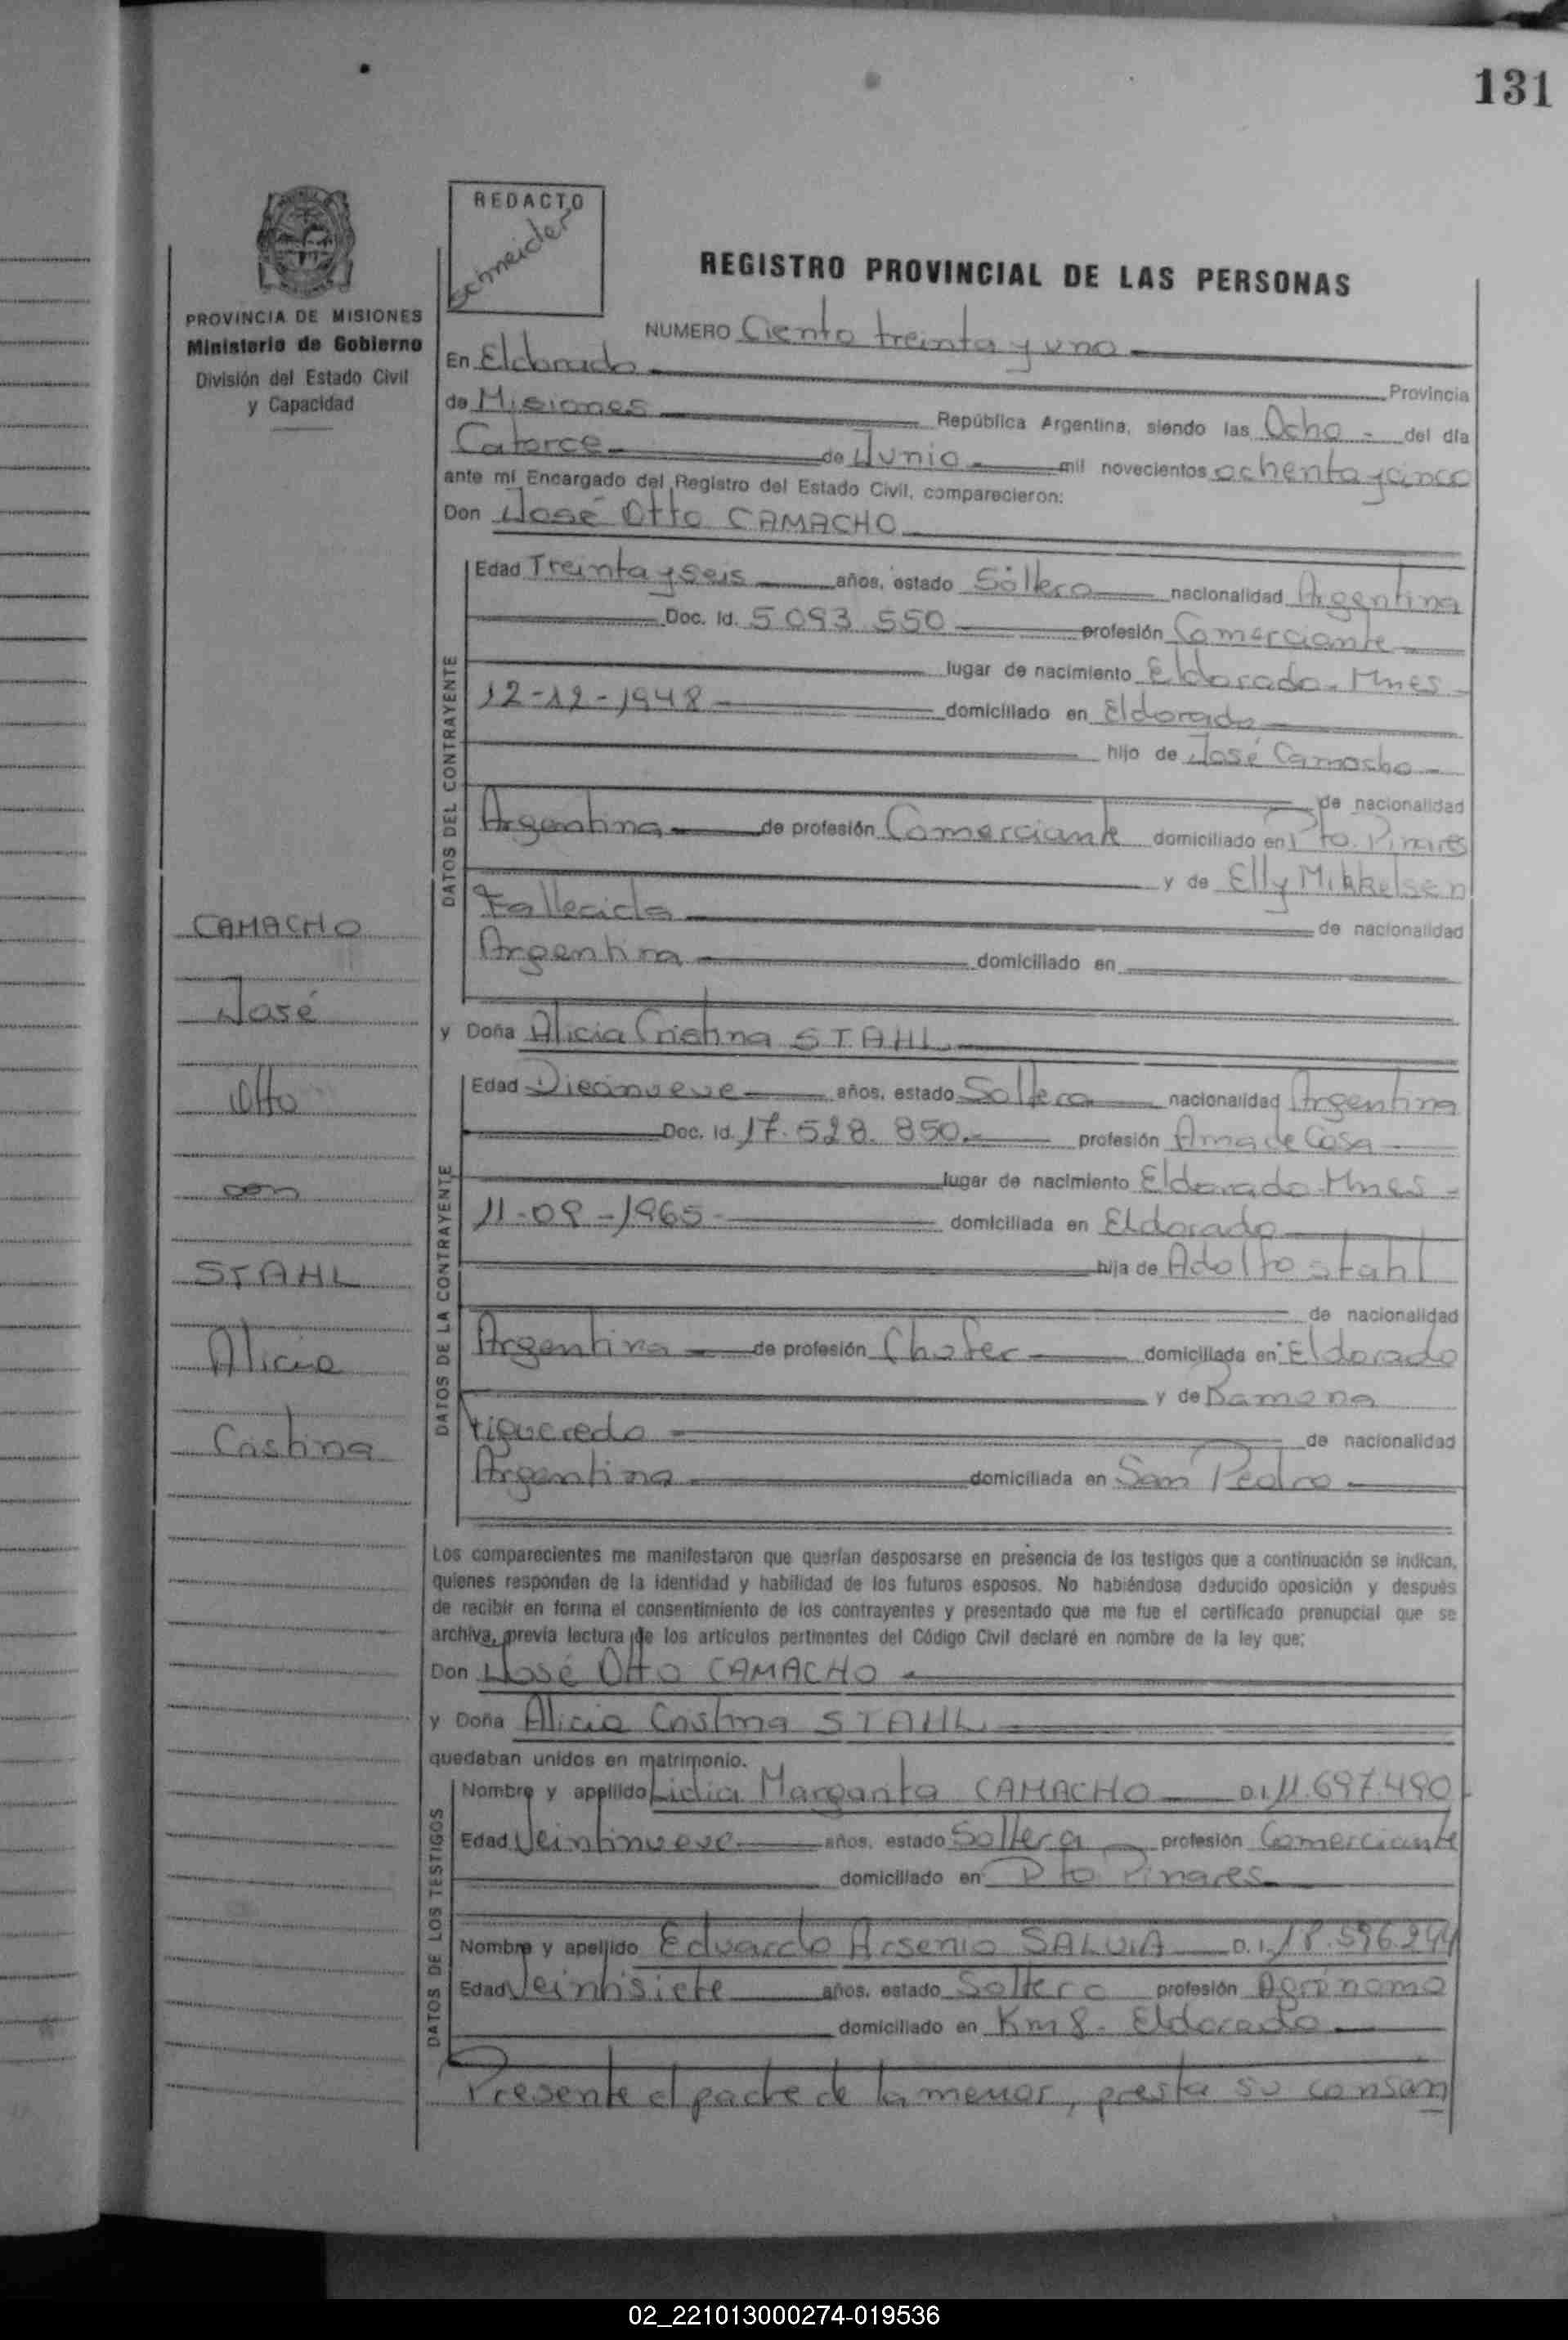 131
REDACTO
Schneider
PROVINCIA DE MISIONES
Ministerio de Gobierno
División del Estado Civil
y Capacidad
REGISTRO PROVINCIAL DE LAS PERSONAS
NUMERO Ciento treinta y uno
En Eldorado Provincia
de Misiones República Argentina, siendo las Ocho del día
Catorce de Junio mil novecientos ochenta y cinco
ante mí Encargado del Registro del Estado Civil, comparecieron:
Don José Otto CAMACHO
DATOS DEL CONTRAYENTE
Edad Treinta y seis años, estado Soltero nacionalidad Argentina
Doc. Id. 5 093 550 profesión Comerciante
lugar de nacimiento Eldorado - Mnes -
12-12-1948 domiciliado en Eldorado
hijo de José Camacho
de nacionalidad
Argentina de profesión Comerciante domiciliado en Pto. Pinares
y de Elly Mikkelsen
Fallecida de nacionalidad
Argentina domiciliado en
y Doña Alicia Cristina STAHL
DATOS DE LA CONTRAYENTE
Edad Diecinueve años, estado Soltera nacionalidad Argentina
Doc. Id. 17.528.850.- profesión Ama de Casa
lugar de nacimiento Eldorado - Mnes -
11-09-1965 domiciliada en Eldorado
hija de Adolfo Stahl
de nacionalidad
Argentina de profesión Chofer domiciliada en Eldorado
y de Ramona
Figueredo de nacionalidad
Argentina domiciliada en San Pedro
CAMACHO
José
Otto
con
STAHL
Alicia
Cristina
Los comparecientes me manifestaron que querían desposarse en presencia de los testigos que a continuación se indican,
quienes responden de la identidad y habilidad de los futuros esposos. No habiéndose deducido oposición y después
de recibir en forma el consentimiento de los contrayentes y presentado que me fue el certificado prenupcial que se
archiva, previa lectura de los artículos pertinentes del Código Civil declaré en nombre de la ley que:
Don José Otto CAMACHO
y Doña Alicia Cristina STAHL
quedaban unidos en matrimonio.
DATOS DE LOS TESTIGOS
Nombre y apellido Lidia Margarita CAMACHO D.I. 11.697.490
Edad Veintinueve años, estado Soltera profesión Comerciante
domiciliado en Pto Pinares
Nombre y apellido Eduardo Arsenio SALVIA D.I. 18.596.244
Edad Veintisiete años, estado Soltero profesión Agrónomo
domiciliado en Km 8 - Eldorado
Presente el padre de la menor, presta su consen
02_221013000274-019536